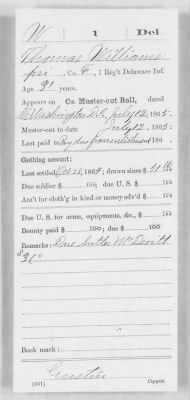 W 1 Del.
Thomas Williams
pri , Co. , 1 Reg't Delaware Inf.
Age 31 years.
Appears on Co. Muster-out Roll, dated
Washington D.C., July 12, 1865.
Muster-out to date July 12, 1865.
Last paid to 186 .
Clothing account:
Last settled Oct 31, 1864; drawn since $
Due soldier $ 100; due U. S. $ 100
Am't for cloth'g in kind or money adv'd $ 100
Due U. S. for arms, equipments, &c., $ 100
Bounty paid $ 100; due $ 100
Remarks: Due sutler
Book mark:
(861) Copyist.